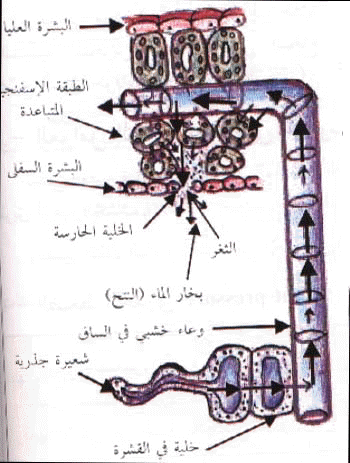 البشرة العليا
الطبقة الإسفنجية
المتباعدة
البشرة السفلى
الخلية الحارسة
الثغر
بخار الماء (النتح)
وعاء خشبي في الساق
شعيرة جذرية
خلية في القشرة